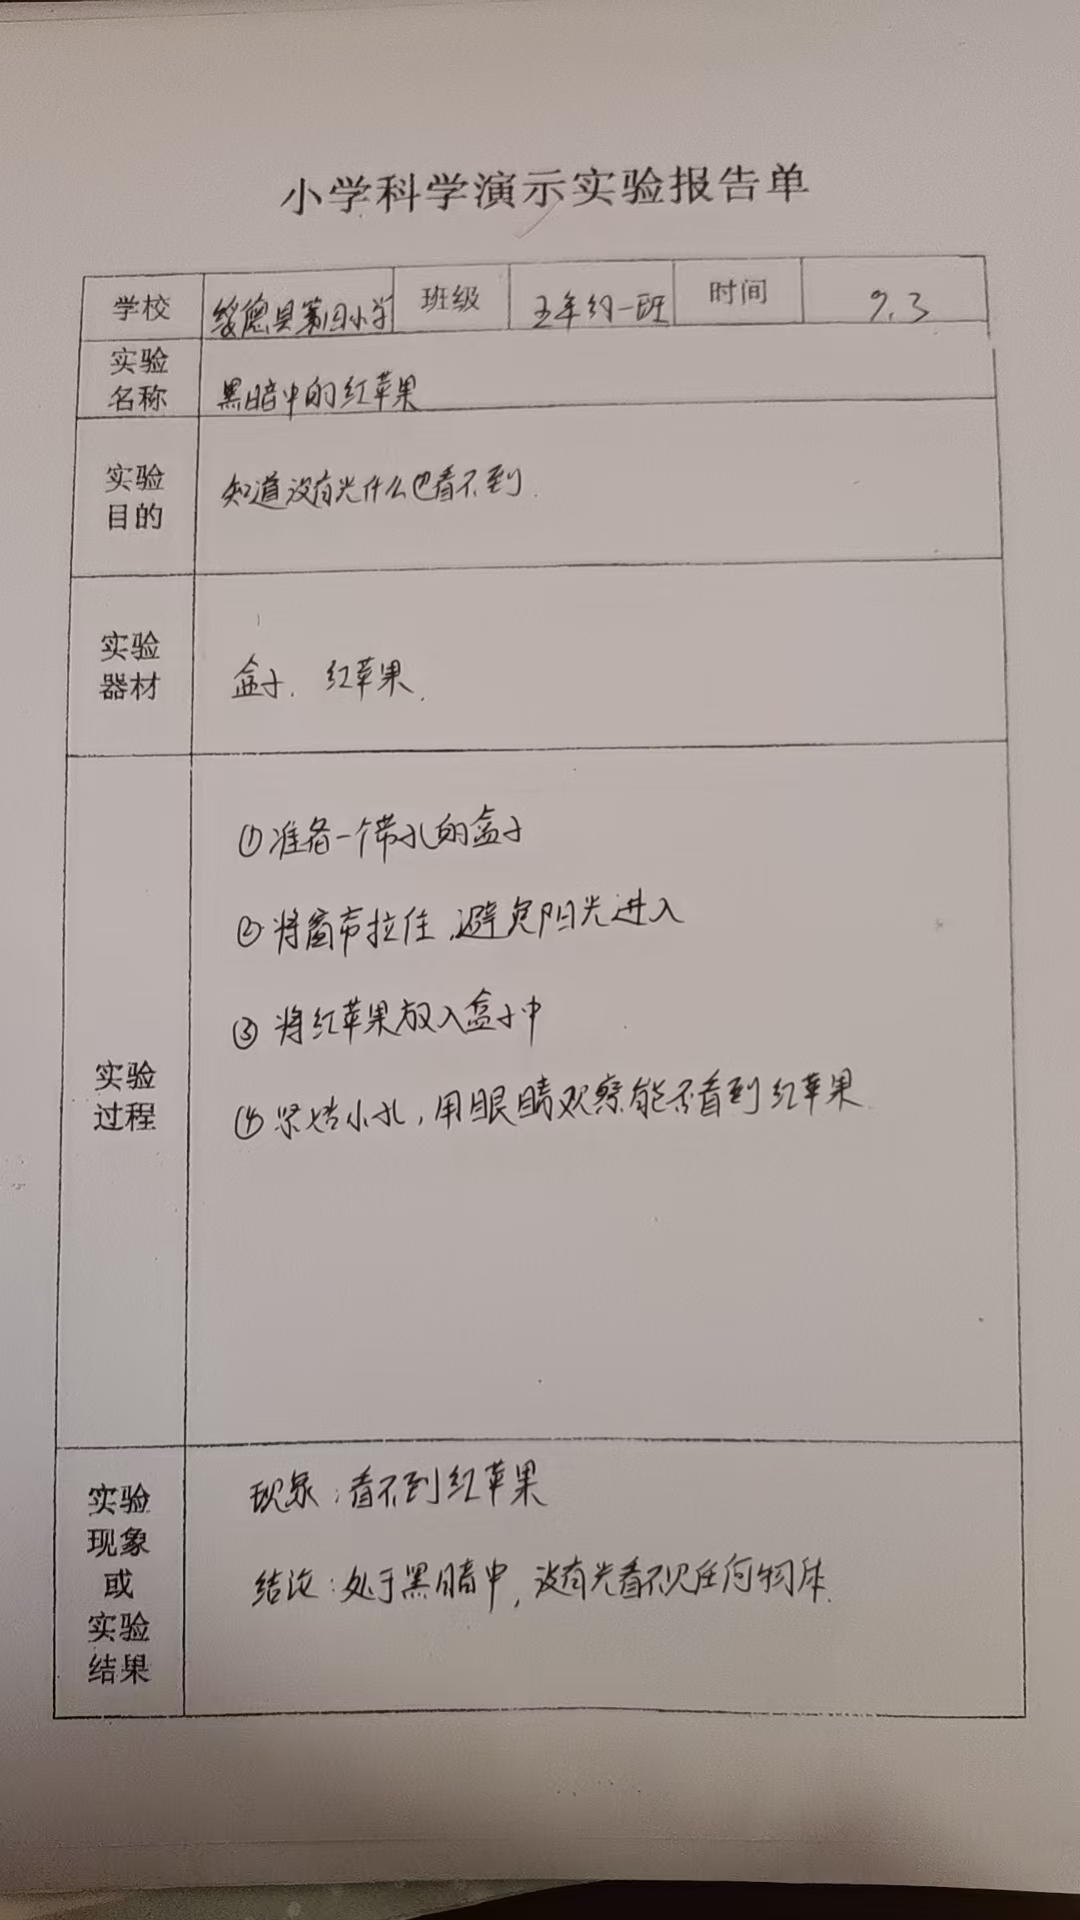 小学科学演示实验报告单
学校 绥德县第四小学 班级 五年级一班 时间 9.3
实验名称 黑暗中的红苹果
实验目的 知道没有光什么也看不到.
实验器材 盒子. 红苹果.
实验过程
①准备一个带孔的盒子
②将窗布拉住,避免阳光进入
③将红苹果放入盒子中
④紧挨小孔,用眼睛观察能否看到红苹果.
实验现象或实验结果
现象:看不到红苹果
结论:处于黑暗中,没有光看不见任何物体.